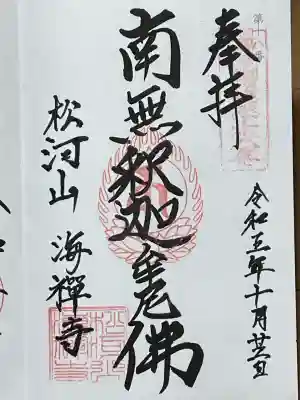 奉拝
第十八番
令和五年十月廿八日
南無釈迦牟尼佛
松河山 海禅寺